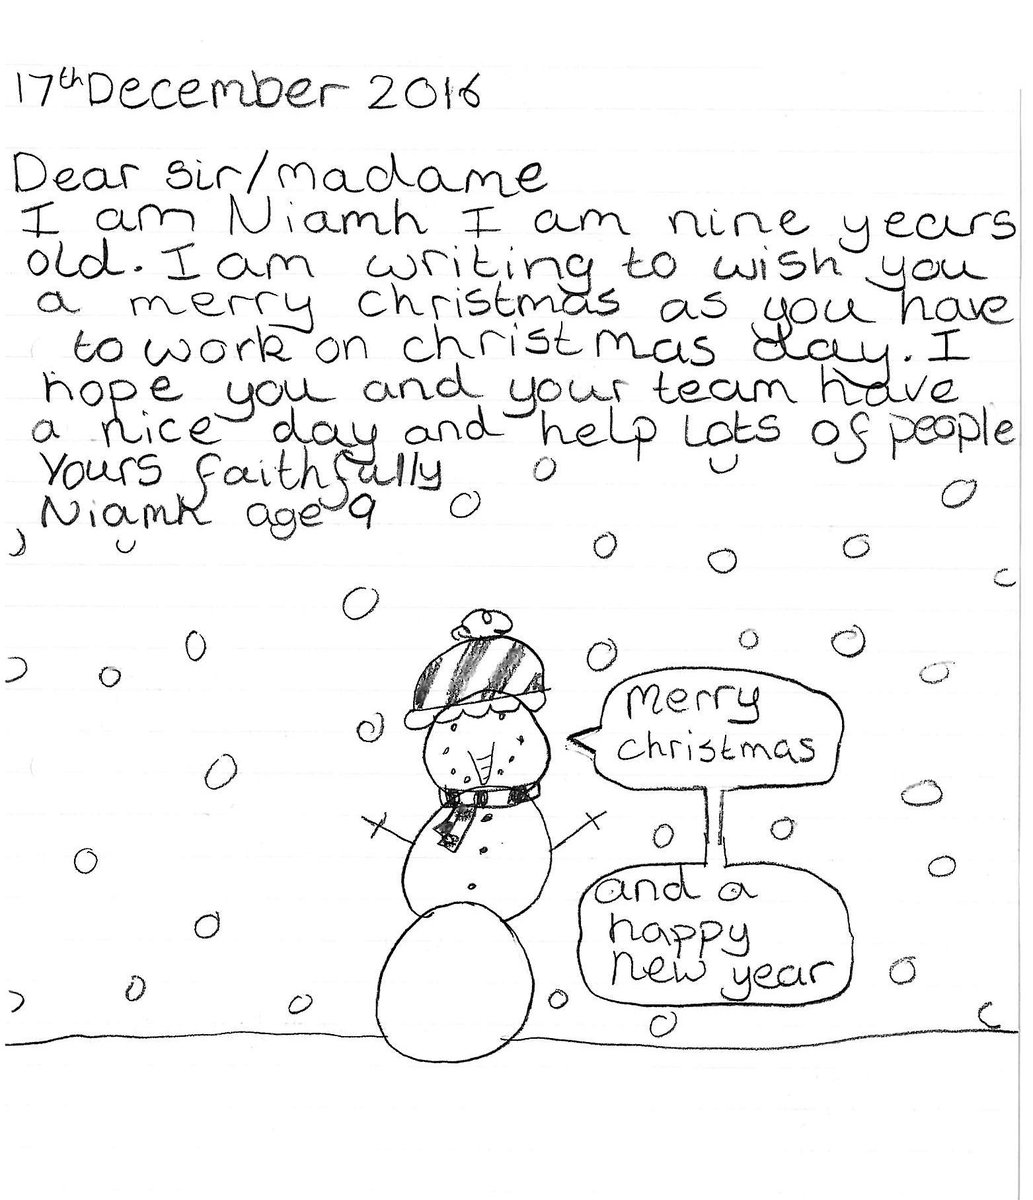 17th December 2016
Dear sir/madame
I am Niamh I am nine years
old. I am writing to wish you
a merry christmas as you have
to work on christmas day. I
hope you and your team have
a nice day and help lots of people
Yours faithfully
Niamh age 9
merry
christmas
and a
happy
new year